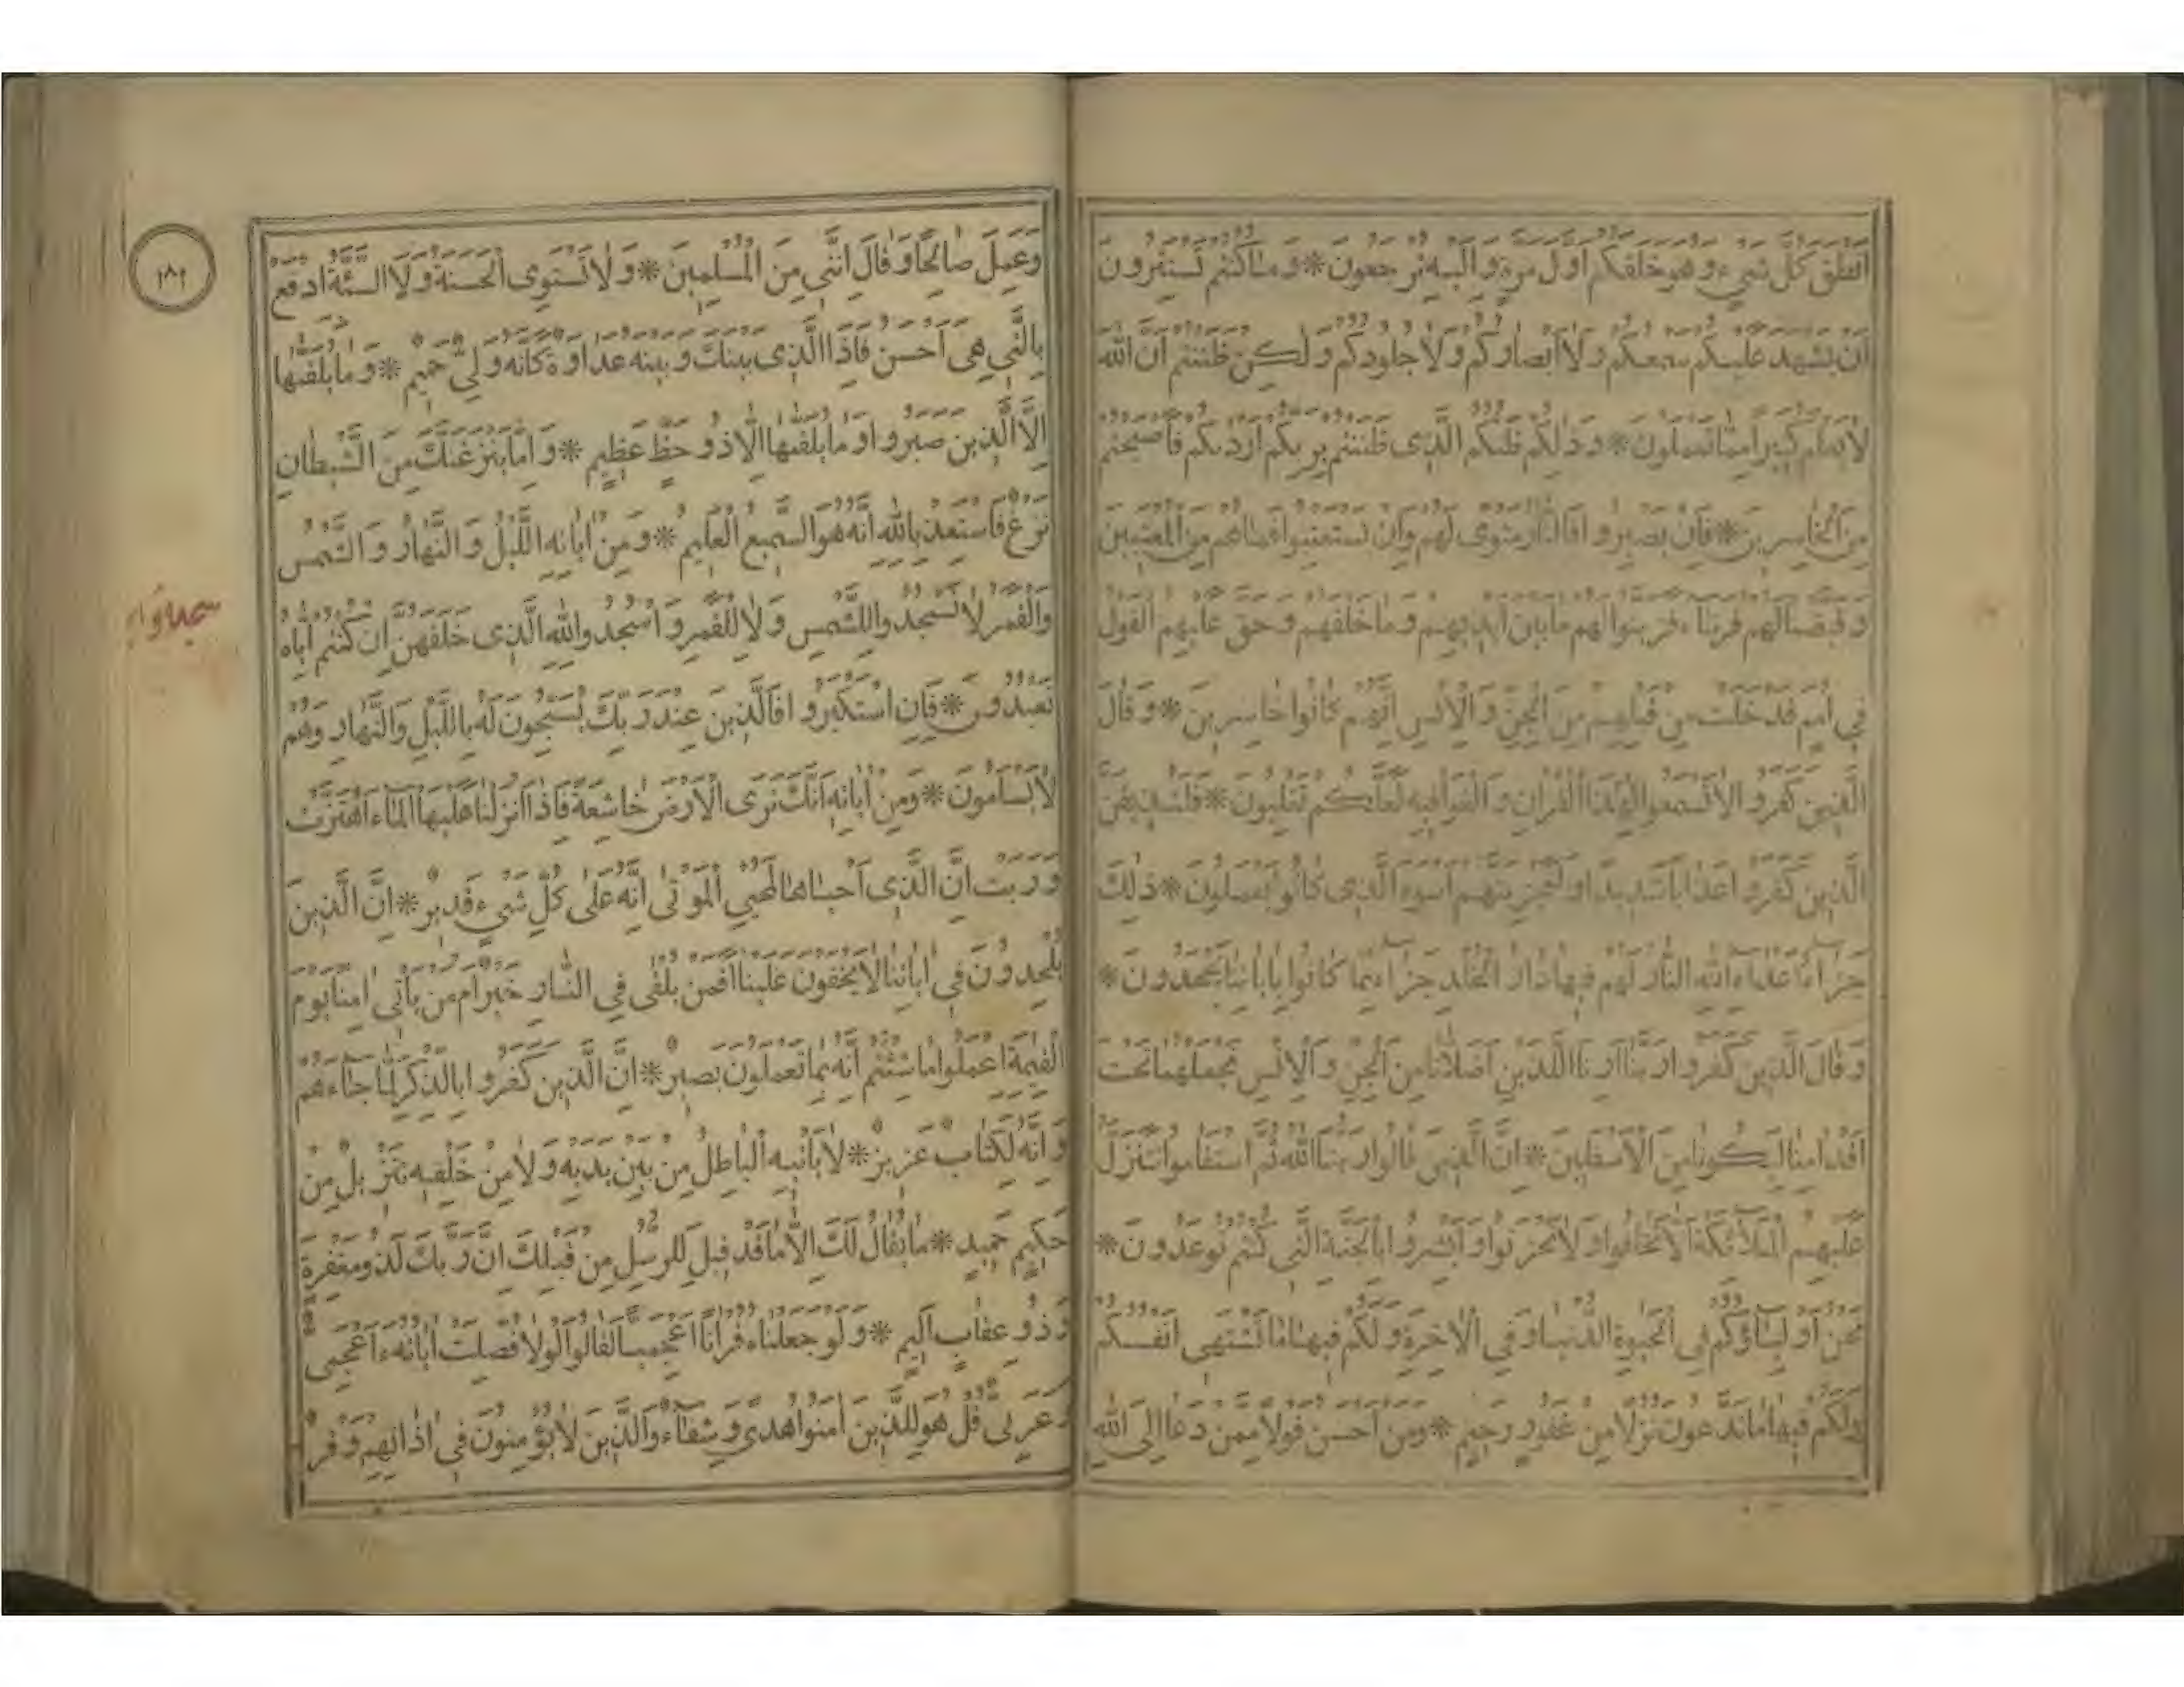 اَنْطَقَ كُلَّ شَيْءٍ وَهُوَ خَلَقَكُمْ اَوَّلَ مَرَّةٍ وَاِلَيْهِ تُرْجَعُونَ * وَمَا كُنْتُمْ تَسْتَتِرُونَ
اَنْ يَشْهَدَ عَلَيْكُمْ سَمْعُكُمْ وَلَا اَبْصَارُكُمْ وَلَا جُلُودُكُمْ وَلٰكِنْ ظَنَنْتُمْ اَنَّ اللّٰهَ
لَا يَعْلَمُ كَثِيرًا مِمَّا تَعْمَلُونَ * وَذٰلِكُمْ ظَنُّكُمُ الَّذِى ظَنَنْتُمْ بِرَبِّكُمْ اَرْدٰىكُمْ فَاَصْبَحْتُمْ
مِنَ الْخَاسِرِينَ * فَاِنْ يَصْبِرُوا فَالنَّارُ مَثْوًى لَهُمْ وَاِنْ يَسْتَعْتِبُوا فَمَا هُمْ مِنَ الْمُعْتَبِينَ
وَقَيَّضْنَا لَهُمْ قُرَنَاءَ فَزَيَّنُوا لَهُمْ مَا بَيْنَ اَيْدِيهِمْ وَمَا خَلْفَهُمْ وَحَقَّ عَلَيْهِمُ الْقَوْلُ
فِى اُمَمٍ قَدْ خَلَتْ مِنْ قَبْلِهِمْ مِنَ الْجِنِّ وَالْاِنْسِ اِنَّهُمْ كَانُوا خَاسِرِينَ * وَقَالَ
الَّذِينَ كَفَرُوا لَا تَسْمَعُوا لِهٰذَا الْقُرْاٰنِ وَالْغَوْا فِيهِ لَعَلَّكُمْ تَغْلِبُونَ * فَلَنُذِيقَنَّ
الَّذِينَ كَفَرُوا عَذَابًا شَدِيدًا وَلَنَجْزِيَنَّهُمْ اَسْوَءَ الَّذِى كَانُوا يَعْمَلُونَ * ذٰلِكَ
جَزَاءُ اَعْدَاءِ اللّٰهِ النَّارُ لَهُمْ فِيهَا دَارُ الْخُلْدِ جَزَاءً بِمَا كَانُوا بِاٰيَاتِنَا يَجْحَدُونَ *
وَقَالَ الَّذِينَ كَفَرُوا رَبَّنَا اَرِنَا اللَّذَيْنِ اَضَلَّانَا مِنَ الْجِنِّ وَالْاِنْسِ نَجْعَلْهُمَا تَحْتَ
اَقْدَامِنَا لِيَكُونَا مِنَ الْاَسْفَلِينَ * اِنَّ الَّذِينَ قَالُوا رَبُّنَا اللّٰهُ ثُمَّ اسْتَقَامُوا تَتَنَزَّلُ
عَلَيْهِمُ الْمَلَائِكَةُ اَلَّا تَخَافُوا وَلَا تَحْزَنُوا وَاَبْشِرُوا بِالْجَنَّةِ الَّتِى كُنْتُمْ تُوعَدُونَ *
نَحْنُ اَوْلِيَاؤُكُمْ فِى الْحَيٰوةِ الدُّنْيَا وَفِى الْاٰخِرَةِ وَلَكُمْ فِيهَا مَا تَشْتَهِى اَنْفُسُكُمْ
وَلَكُمْ فِيهَا مَا تَدَّعُونَ نُزُلًا مِنْ غَفُورٍ رَحِيمٍ * وَمَنْ اَحْسَنُ قَوْلًا مِمَّنْ دَعَا اِلَى اللّٰهِ
وَعَمِلَ صَالِحًا وَقَالَ اِنَّنِى مِنَ الْمُسْلِمِينَ * وَلَا تَسْتَوِى الْحَسَنَةُ وَلَا السَّيِّئَةُ اِدْفَعْ
بِالَّتِى هِىَ اَحْسَنُ فَاِذَا الَّذِى بَيْنَكَ وَبَيْنَهُ عَدَاوَةٌ كَاَنَّهُ وَلِىٌّ حَمِيمٌ * وَمَا يُلَقّٰيهَا
اِلَّا الَّذِينَ صَبَرُوا وَمَا يُلَقّٰيهَا اِلَّا ذُو حَظٍّ عَظِيمٍ * وَاِمَّا يَنْزَغَنَّكَ مِنَ الشَّيْطَانِ
نَزْغٌ فَاسْتَعِذْ بِاللّٰهِ اِنَّهُ هُوَ السَّمِيعُ الْعَلِيمُ * وَمِنْ اٰيَاتِهِ اللَّيْلُ وَالنَّهَارُ وَالشَّمْسُ
وَالْقَمَرُ لَا تَسْجُدُوا لِلشَّمْسِ وَلَا لِلْقَمَرِ وَاسْجُدُوا لِلّٰهِ الَّذِى خَلَقَهُنَّ اِنْ كُنْتُمْ اِيَّاهُ
تَعْبُدُونَ * فَاِنِ اسْتَكْبَرُوا فَالَّذِينَ عِنْدَ رَبِّكَ يُسَبِّحُونَ لَهُ بِاللَّيْلِ وَالنَّهَارِ وَهُمْ
لَا يَسْاَمُونَ * وَمِنْ اٰيَاتِهِ اَنَّكَ تَرَى الْاَرْضَ خَاشِعَةً فَاِذَا اَنْزَلْنَا عَلَيْهَا الْمَاءَ اهْتَزَّتْ
وَرَبَتْ اِنَّ الَّذِى اَحْيَاهَا لَمُحْيِى الْمَوْتٰى اِنَّهُ عَلٰى كُلِّ شَيْءٍ قَدِيرٌ * اِنَّ الَّذِينَ
يُلْحِدُونَ فِى اٰيَاتِنَا لَا يَخْفَوْنَ عَلَيْنَا اَفَمَنْ يُلْقٰى فِى النَّارِ خَيْرٌ اَمْ مَنْ يَاْتِى اٰمِنًا يَوْمَ
الْقِيٰمَةِ اعْمَلُوا مَا شِئْتُمْ اِنَّهُ بِمَا تَعْمَلُونَ بَصِيرٌ * اِنَّ الَّذِينَ كَفَرُوا بِالذِّكْرِ لَمَّا جَاءَهُمْ
وَاِنَّهُ لَكِتَابٌ عَزِيزٌ * لَا يَاْتِيهِ الْبَاطِلُ مِنْ بَيْنِ يَدَيْهِ وَلَا مِنْ خَلْفِهِ تَنْزِيلٌ مِنْ
حَكِيمٍ حَمِيدٍ * مَا يُقَالُ لَكَ اِلَّا مَا قَدْ قِيلَ لِلرُّسُلِ مِنْ قَبْلِكَ اِنَّ رَبَّكَ لَذُو مَغْفِرَةٍ
وَذُو عِقَابٍ اَلِيمٍ * وَلَوْ جَعَلْنَاهُ قُرْاٰنًا اَعْجَمِيًّا لَقَالُوا لَوْلَا فُصِّلَتْ اٰيَاتُهُ ءَاَعْجَمِىٌّ
وَعَرَبِىٌّ قُلْ هُوَ لِلَّذِينَ اٰمَنُوا هُدًى وَشِفَاءٌ وَالَّذِينَ لَا يُؤْمِنُونَ فِى اٰذَانِهِمْ وَقْرٌ